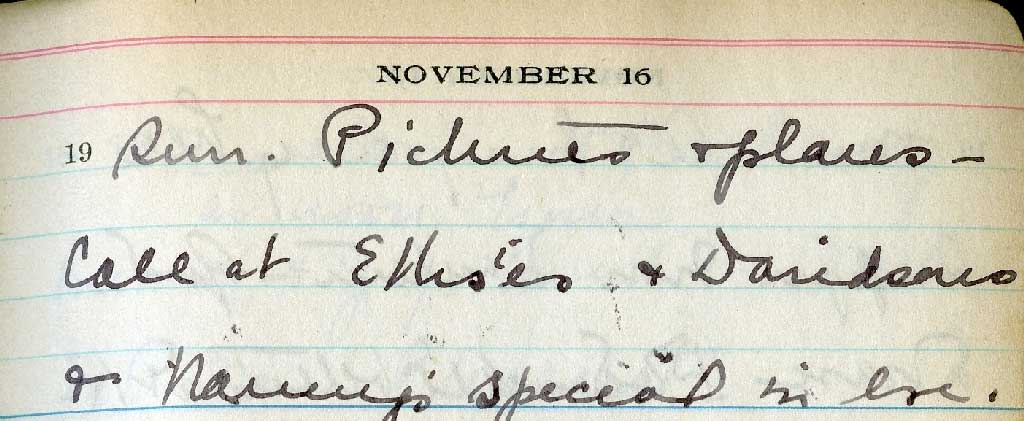 NOVEMBER 16
19 Sun. Pictures & plans –
Call at & Davidsons
& special in eve.